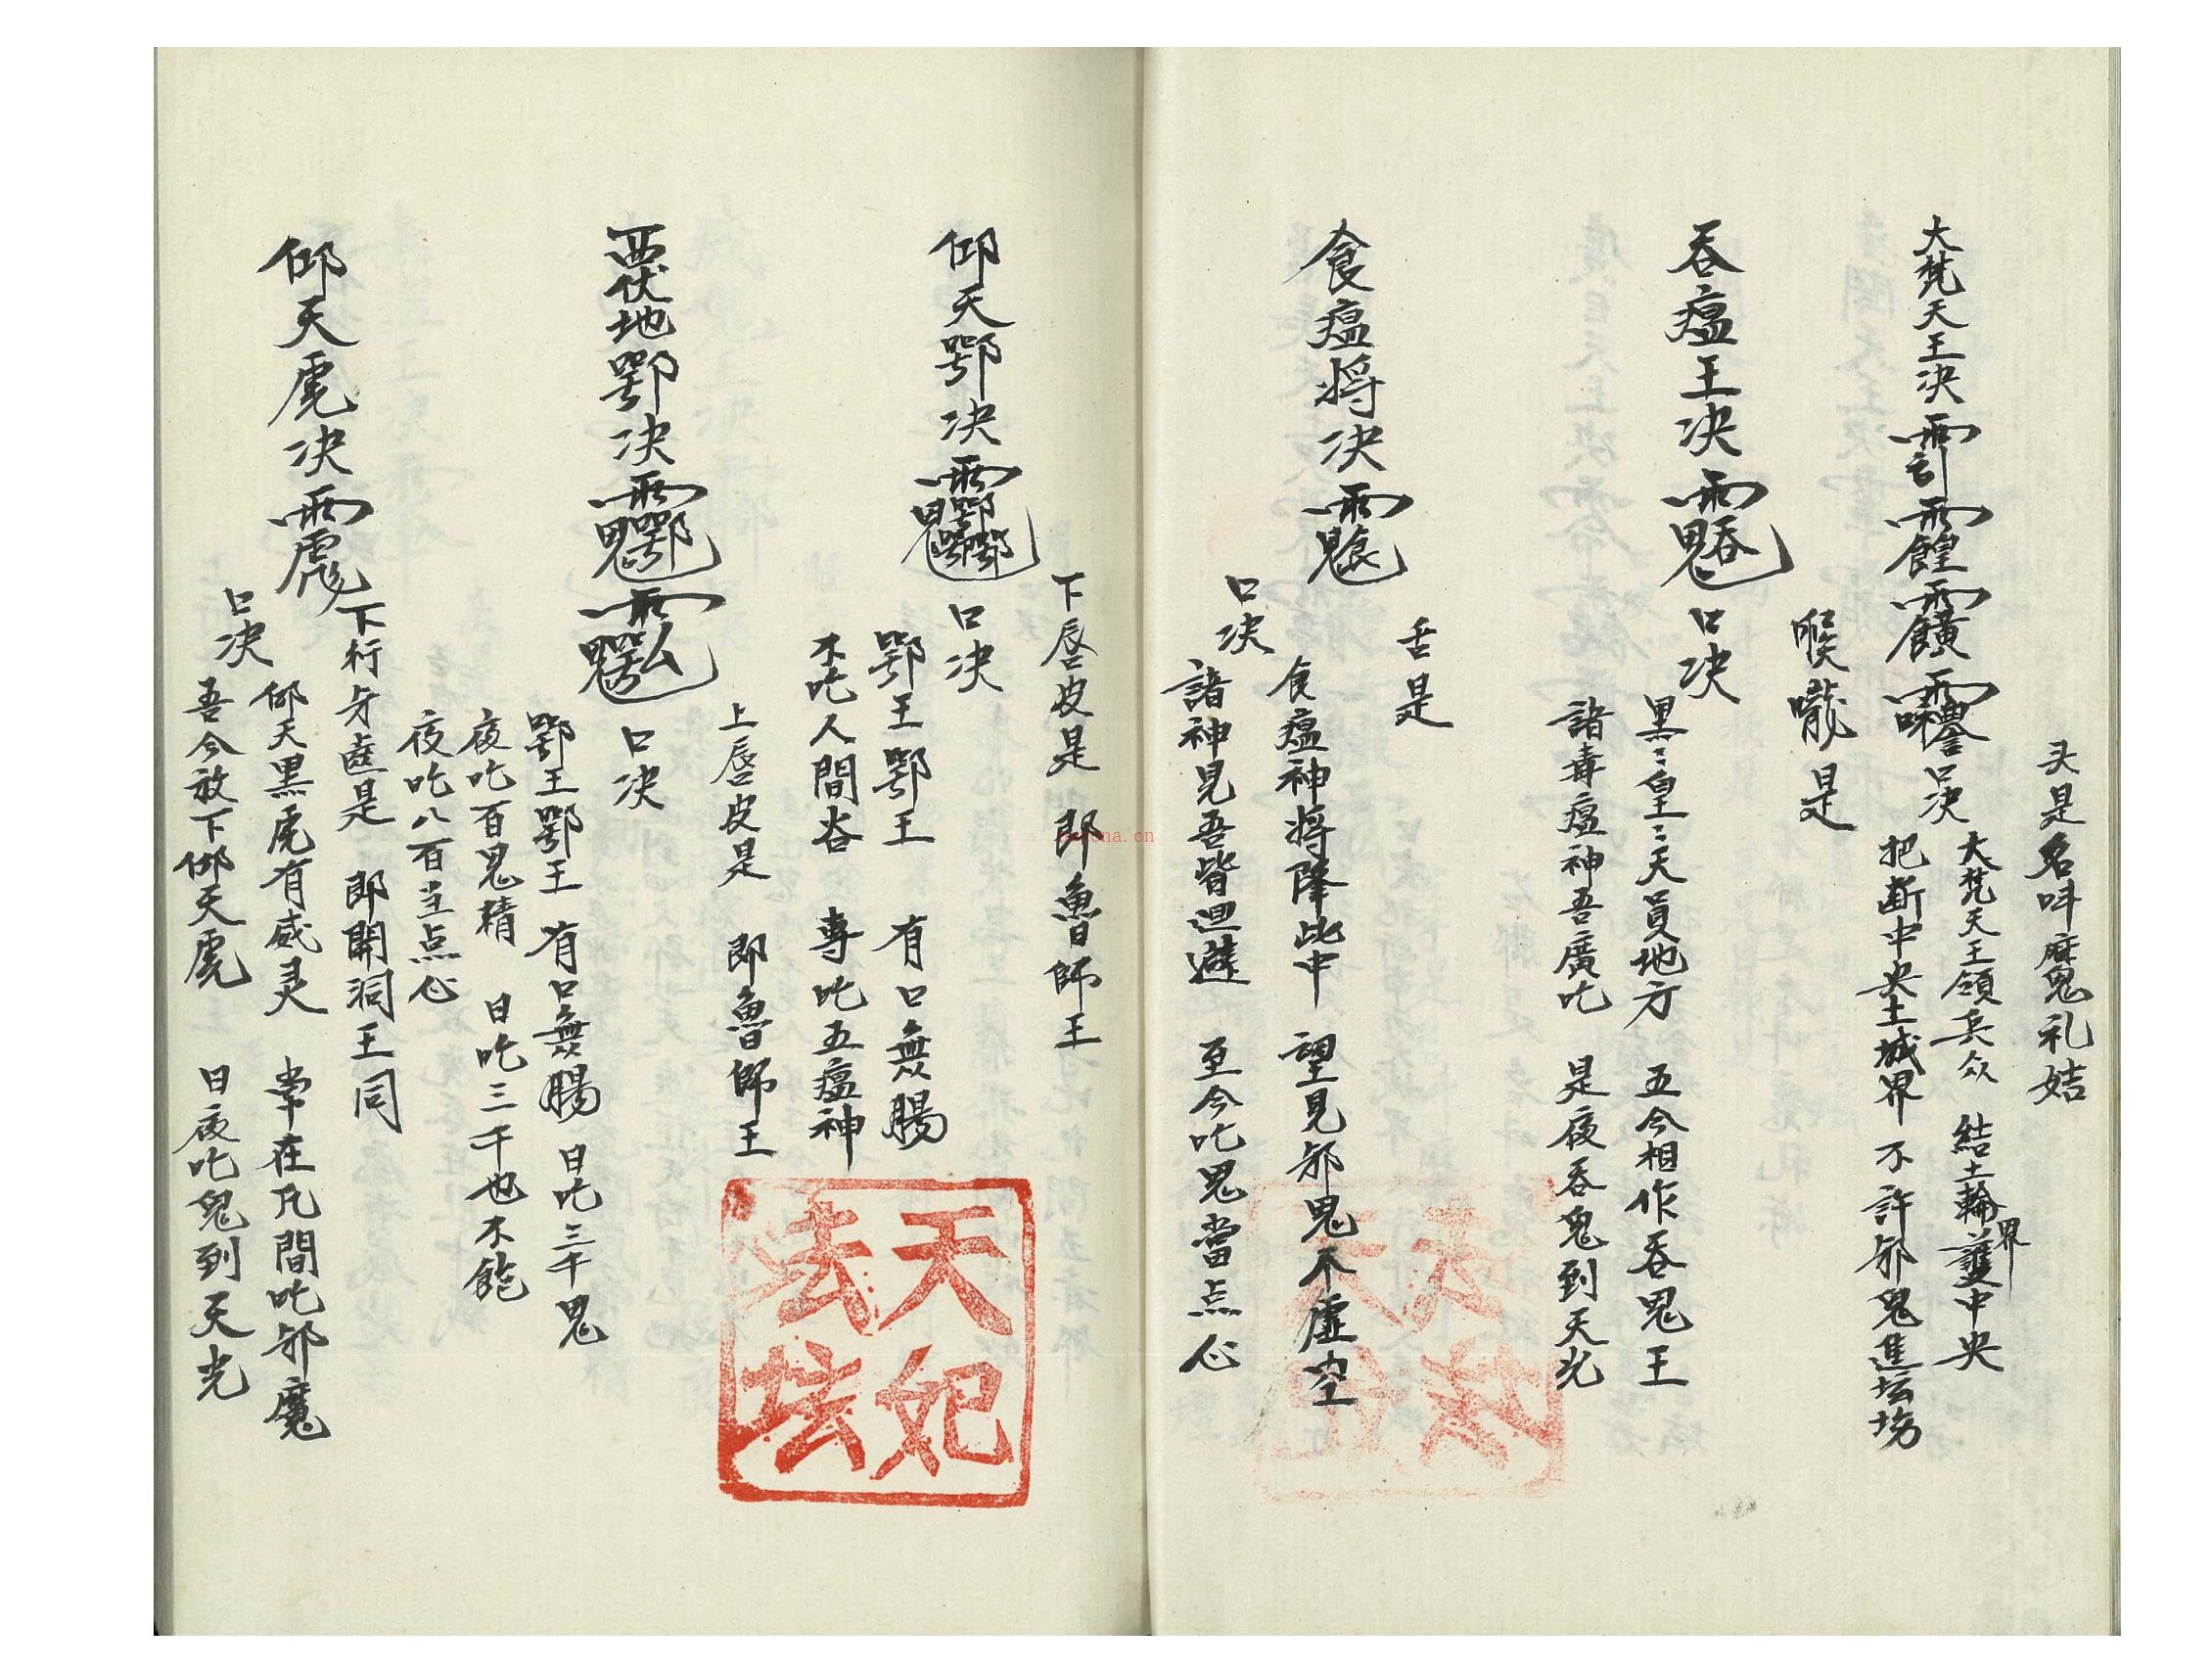 头是名呌麻鬼礼姞
大梵天王决
口决
大梵天王領兵众 結土輪界護中央
把断中央土城界 不許邪鬼進坛塲
喉嚨是
吞瘟王决
口决
黑〻皇〻天員地方 五今相作吞鬼王
諸毒瘟神吾廣吃 是夜吞鬼到天光
舌是
食瘟将决
口决
食瘟神将降此中 望見邪鬼不虛空
諸神見吾皆迴避 至今吃鬼當点心
下唇皮是 郎魯師王
仰天鄂决
口决
鄂王鄂王 有口無腸
不吃人間谷 專吃五瘟神
上唇皮是 郎魯師王
覂伏地鄂决
口决
鄂王鄂王 有口無腸 日吃三千鬼
夜吃百鬼精 日吃三千也不飽
夜吃八百当点心
下行牙齒是 郎開洞王同
仰天虎决
口决
仰天黑虎有威灵 常在凡間吃邪魔
吾今放下仰天虎 日夜吃鬼到天光
天妃
法坛